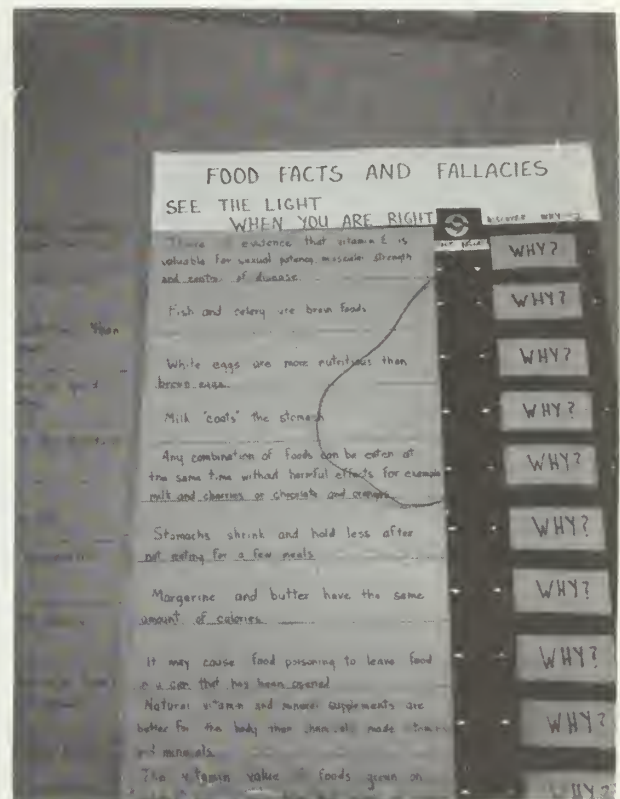 FOOD FACTS AND FALLACIES
SEE THE LIGHT
WHEN YOU ARE RIGHT
DISCOVER WHY
There is evidence that vitamin E is
valuable for sexual potency, muscular strength
and control of disease
WHY?
Fish and celery are brain foods
WHY?
White eggs are more nutritious than
brown eggs
WHY?
Milk "coats" the stomach
WHY?
Any combination of foods can be eaten at
the same time without harmful effects for example
milk and cherries or chocolate and oranges
WHY?
Stomachs shrink and hold less after
not eating for a few meals
WHY?
Margarine and butter have the same
amount of calories
WHY?
It may cause food poisoning to leave food
in a can that has been opened
WHY?
Natural vitamin and mineral supplements are
better for the body than made
and minerals
WHY?
The vitamin value of foods grown on
WHY?